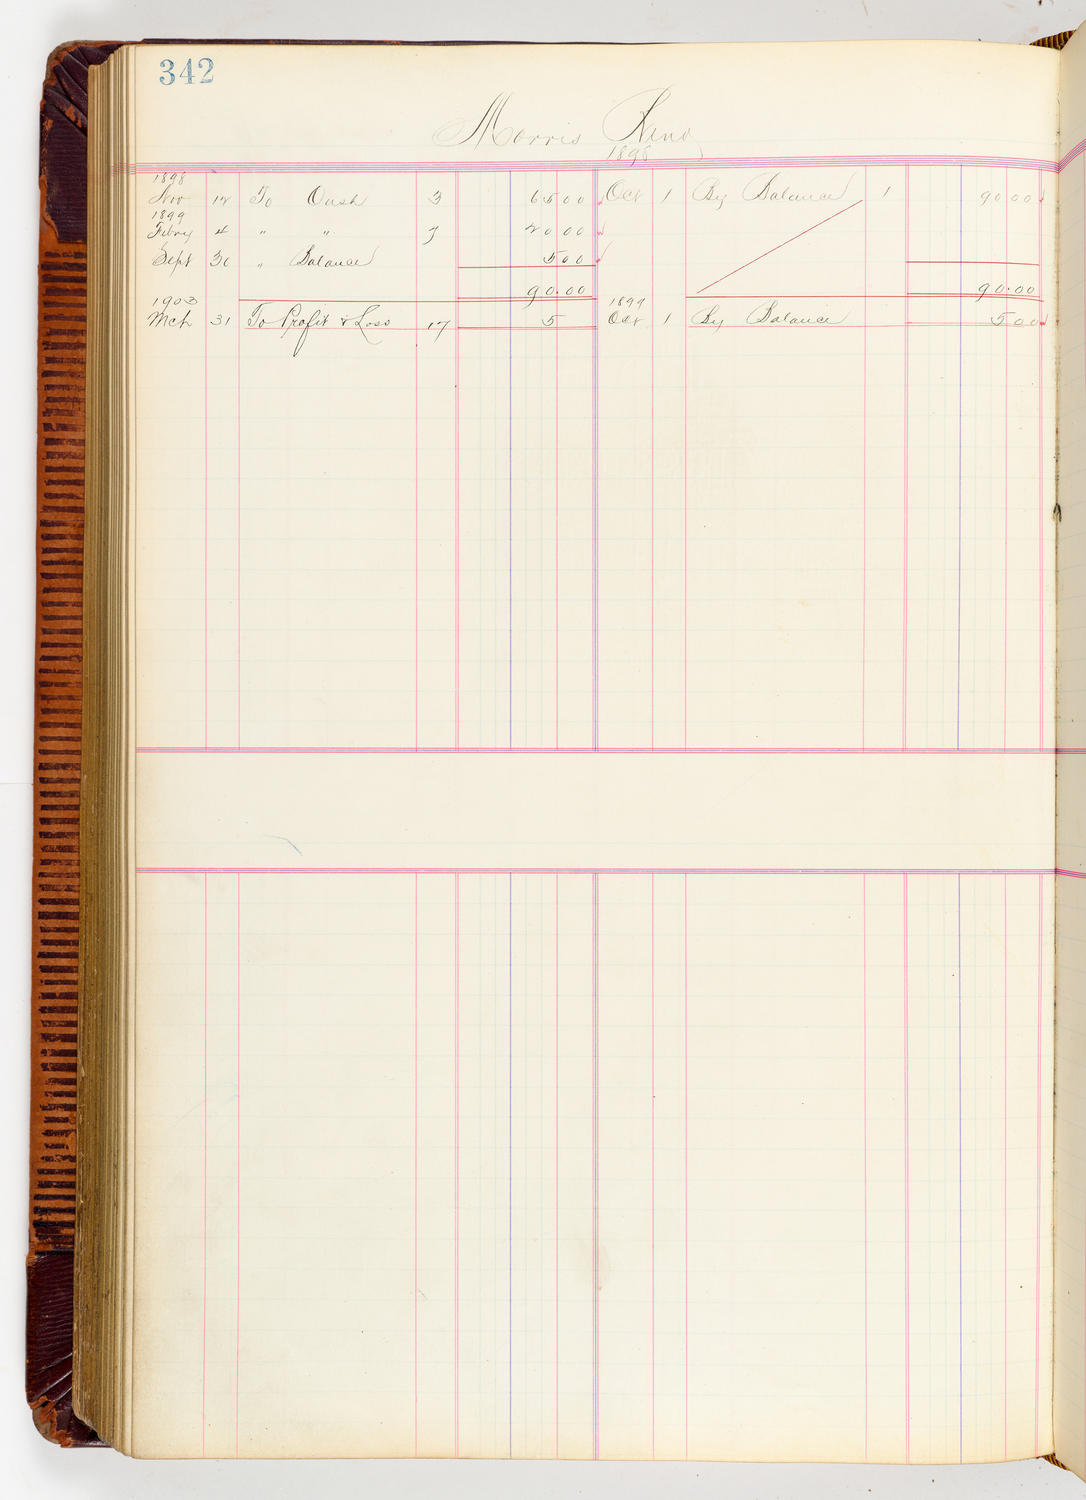 342
Morris Reno
1898
1898
Nov 12 To Cash 3 65 00 Oct 1 By Balance 1 90 00
1899
Febry 4 " " 7 20 00
Sept 30 " Balance 5 00
90.00 90.00
1903 1899
Mch 31 To Profit & Loss 17 5 Oct 1 By Balance 5 00